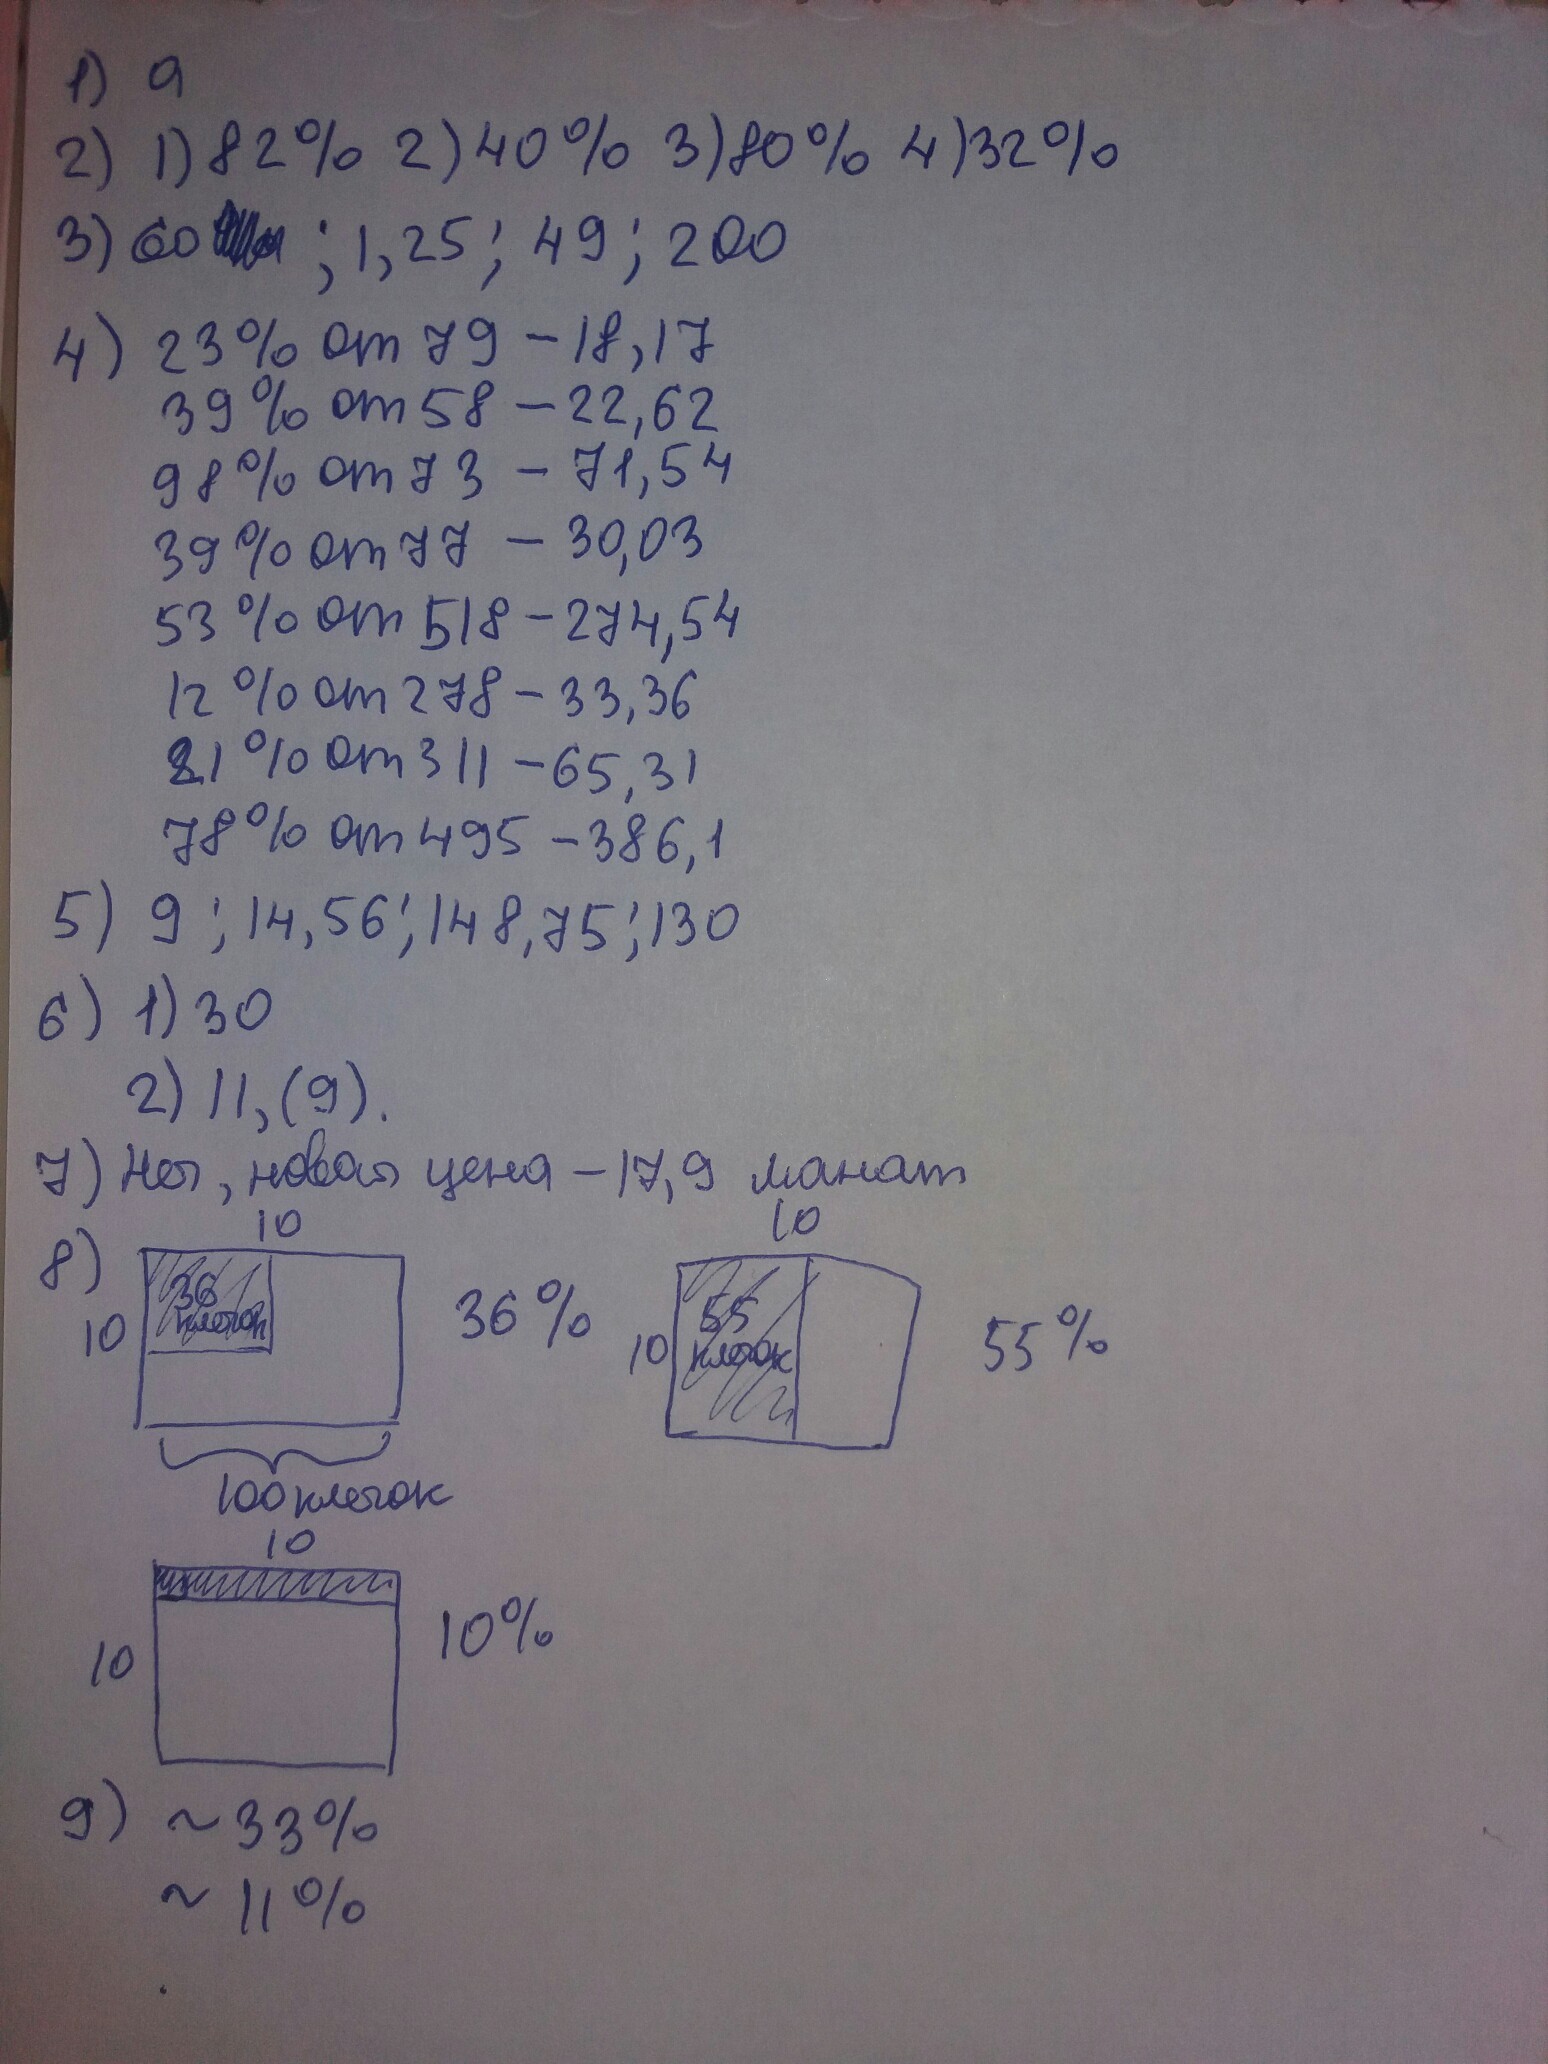 1) a
2) 1) 82% 2) 40% 3) 80% 4) 32%
3) 60 ; 1,25; 49; 200
4) 23% от 79 - 18,17
39% от 58 - 22,62
98% от 73 - 71,54
39% от 77 - 30,03
53% от 518 - 274,54
12% от 278 - 33,36
21% от 311 - 65,31
78% от 495 - 386,1
5) 9; 14,56; 148,75; 130
6) 1) 30
2) 11,(9).
7) Нет, новая цена - 17,9 манат
8) 10 10
36 клеток 10 36% 55 клеток 10 55%
100 клеток
10
10 10%
9) ~33%
~11%